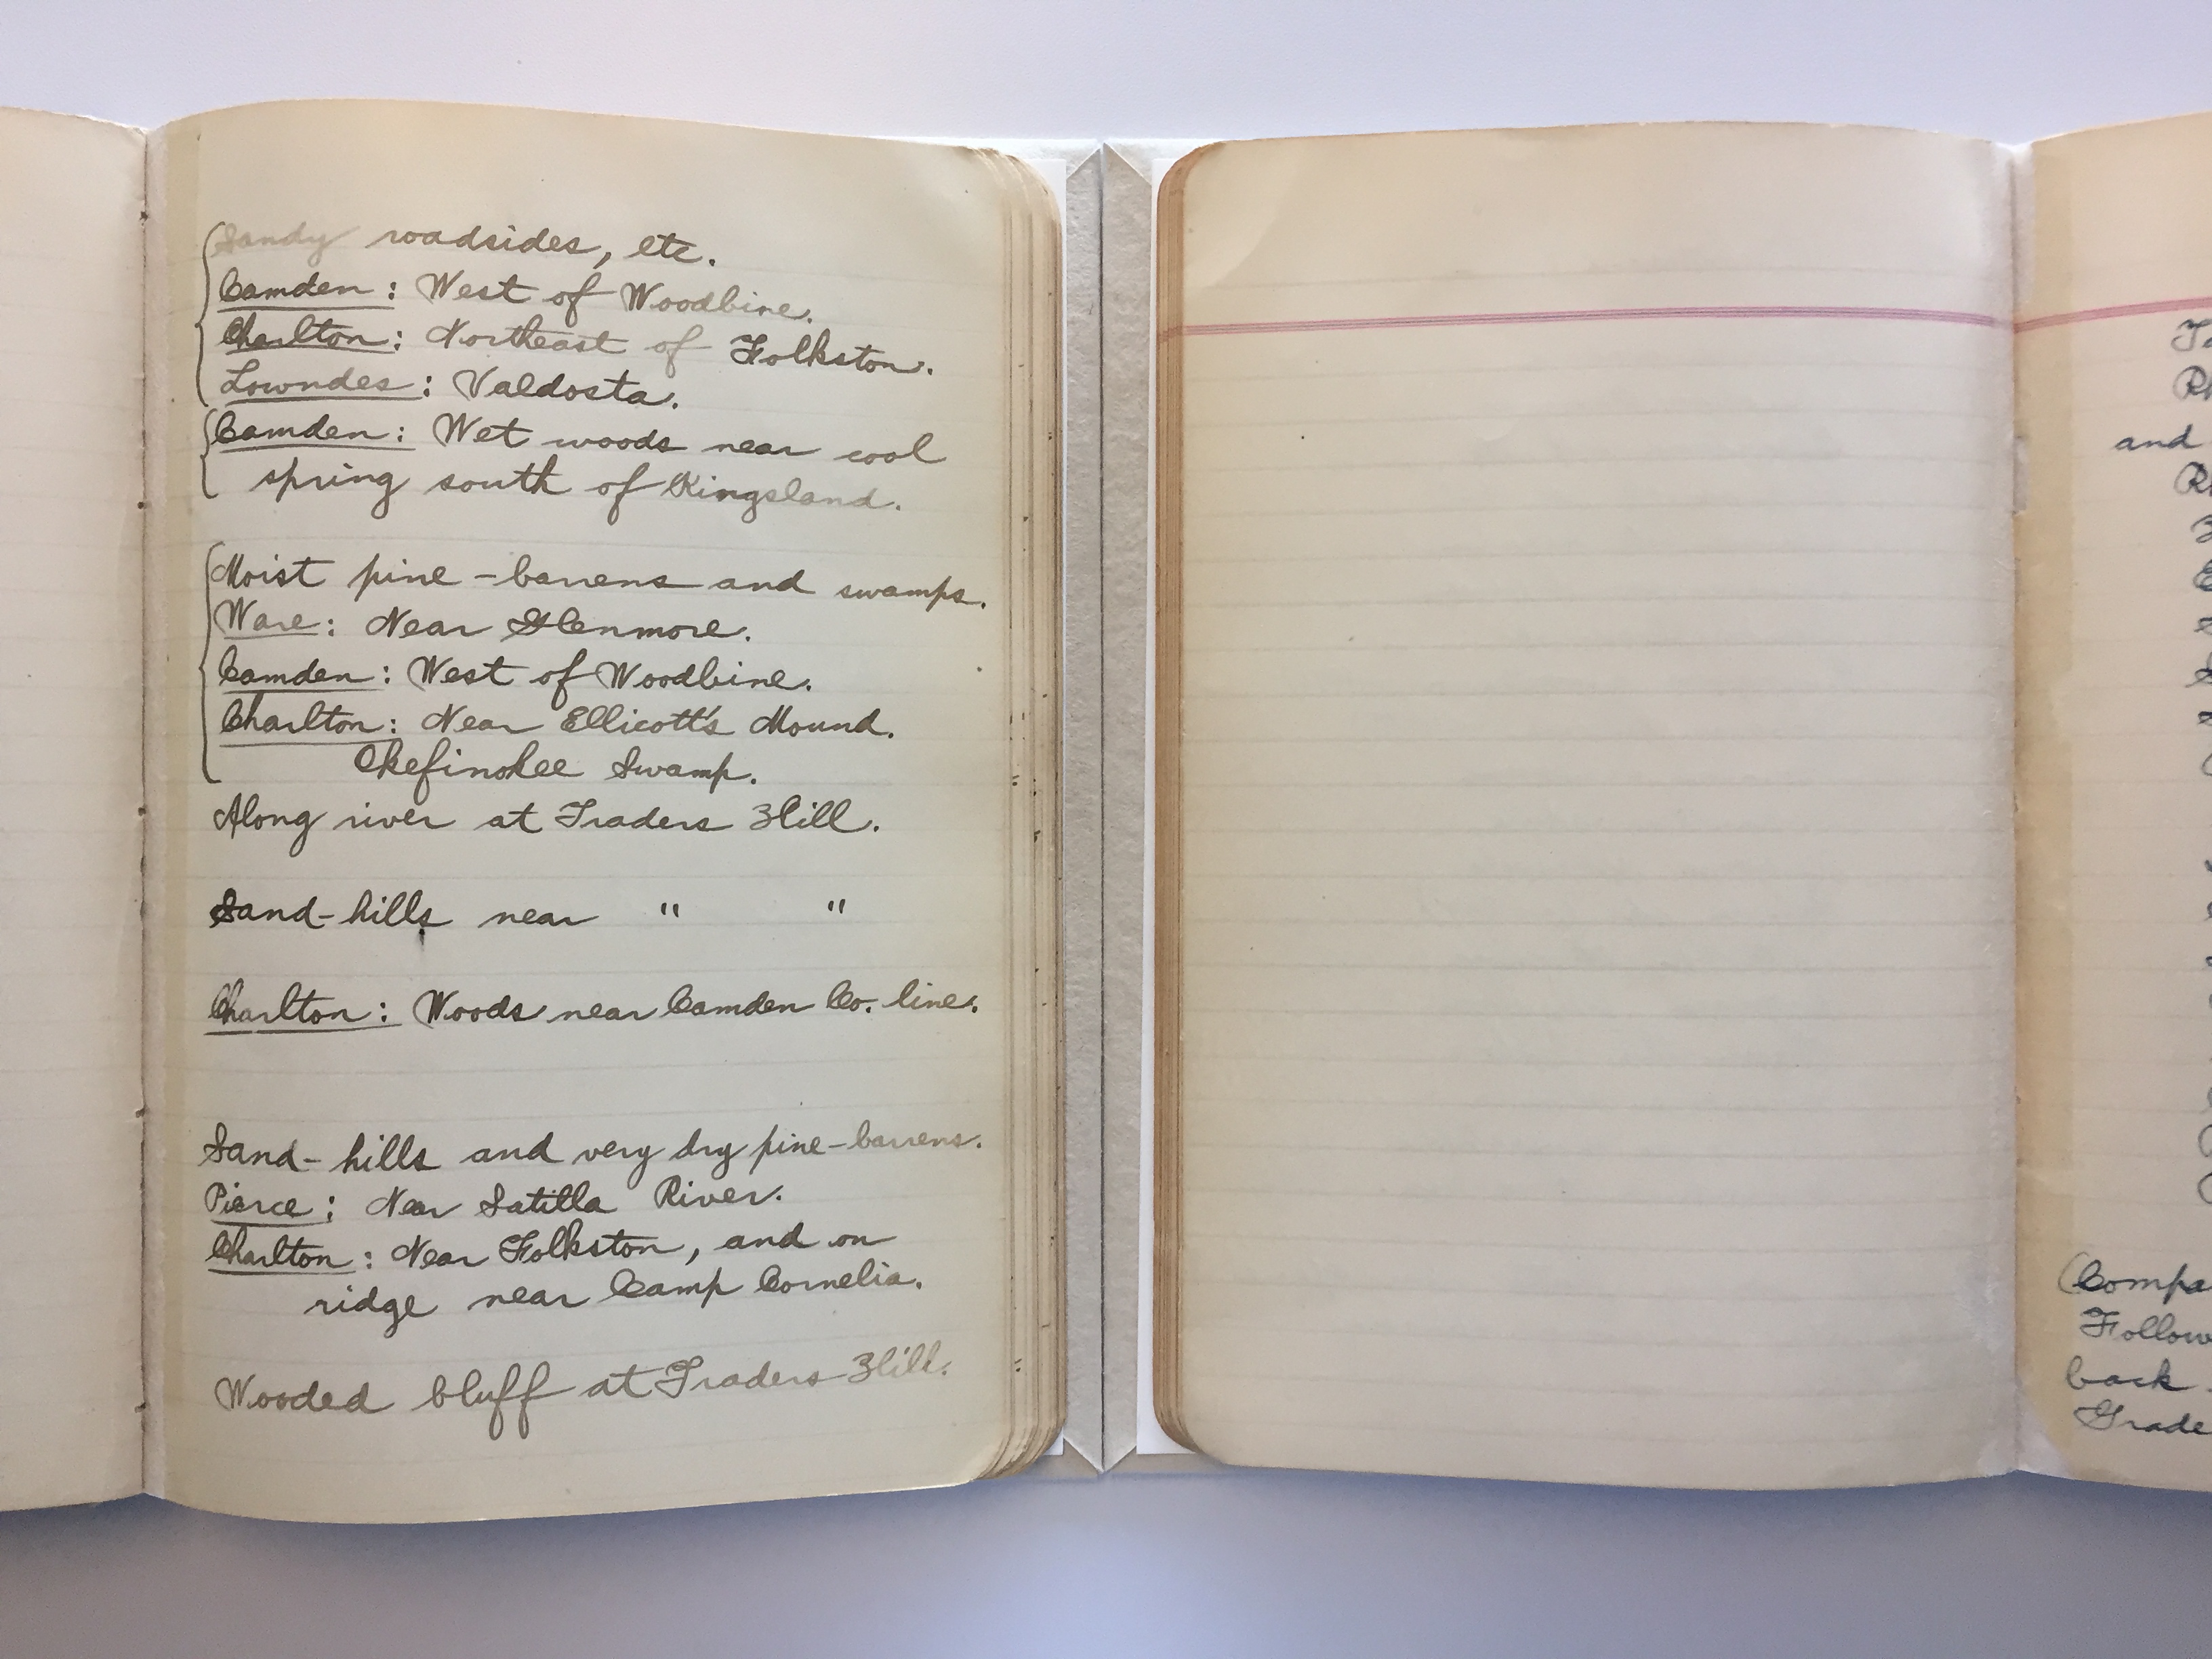 Sandy roadsides, etc.
Camden: West of Woodbine.
Charlton: Northeast of Folkston.
Lowndes: Valdosta.
Camden: Wet woods near cool
spring south of Kingsland.
Moist pine-barrens and swamps.
Ware: Near Glenmore.
Camden: West of Woodbine.
Charlton: Near Ellicott's Mound.
Okefinokee Swamp.
Along river at Traders Hill.
Sand-hills near " "
Charlton: Woods near Camden Co. line.
Sand-hills and very dry pine-barrens.
Pierce: Near Satilla River.
Charlton: Near Folkston, and on
ridge near Camp Cornelia.
Wooded bluff at Traders Hill.
and
back